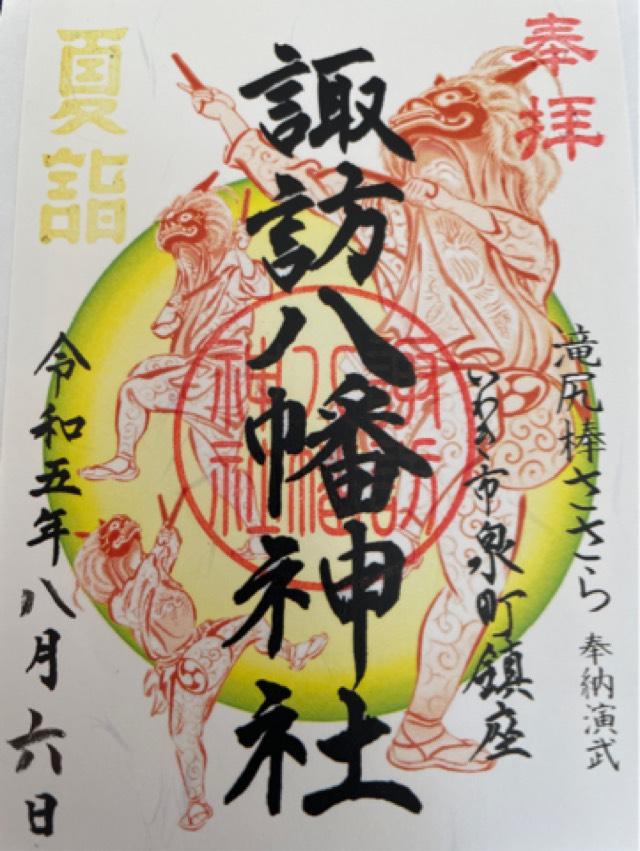 奉拝
滝尻棒ささら 奉納演武
いわき市泉町鎮座
諏訪八幡神社
諏訪
八幡
神社
夏詣
令和五年八月六日